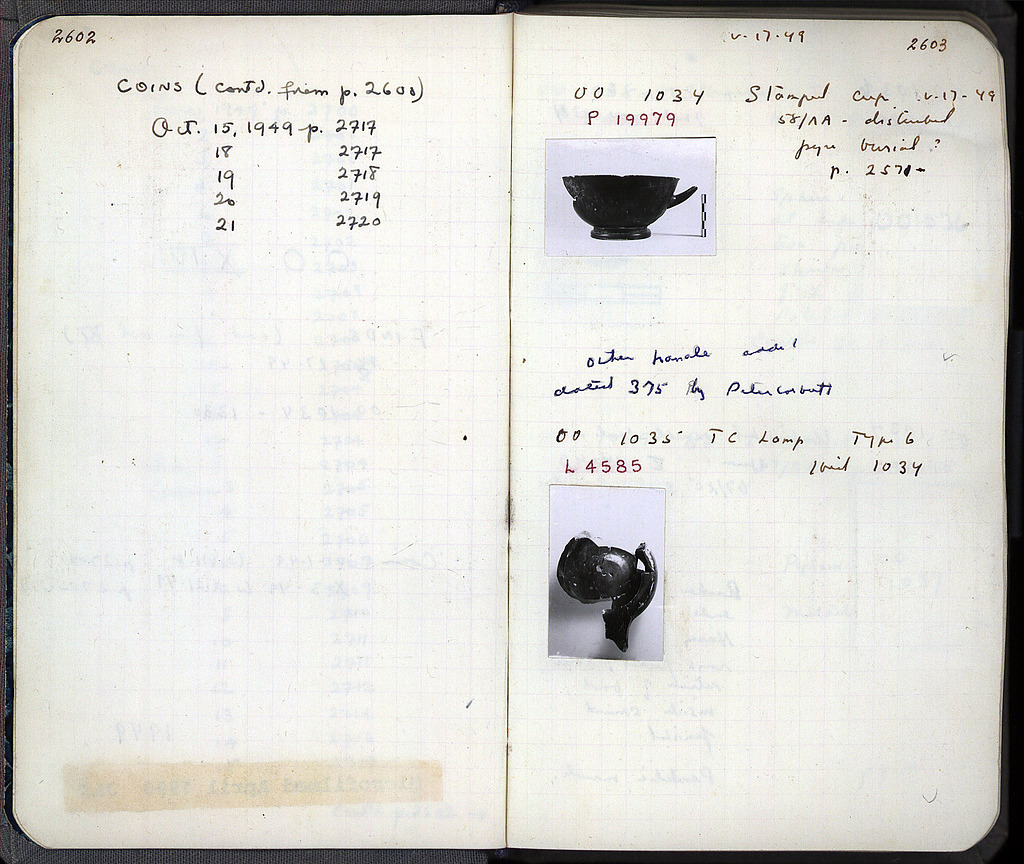 2602
COINS (contd. from p. 2600)
Oct. 15, 1949 p. 2717
18 2717
19 2718
20 2719
21 2720
V-17-49
2603
OO 1034 Stamped cup V-17-49
P 19979 58/ΛΑ - disturbed
pyre burial?
p. 2571-
other handle added
dated 375 by Peter Corbett
OO 1035 TC Lamp Type 6
L 4585 with 1034